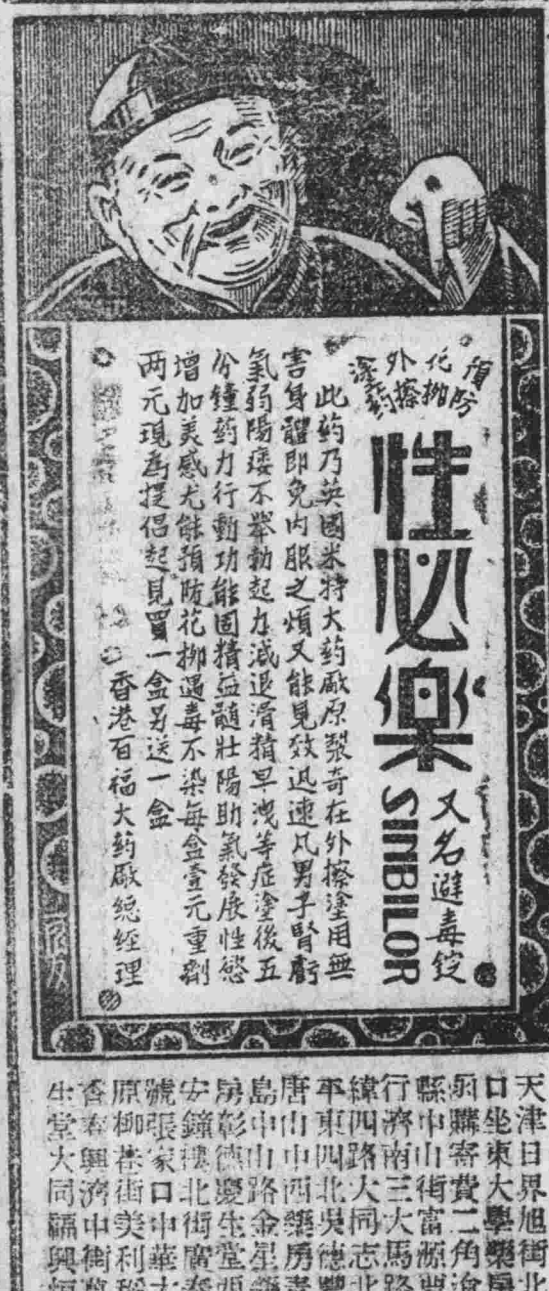 預防
花柳
外擦
塗药
性必樂
SINBILOR
又名避毒錠
此药乃英國米特大药廠原製奇在外擦塗用無
害身體即免内服之煩又能見效迅速凡男子腎虧
氣弱陽痿不舉勃起力減退滑精早洩等症塗後五
分鐘药力行動功能固精益髓壯陽助氣發展性慾
增加美感尤能預防花柳遇毒不染每盒壹元重劑
两元現為提倡起見買一盒另送一盒
香港百福大药廠總經理
天津日界旭街北
口坐東大學藥房
函購寄費二角滄
縣中山街富源興
行濟南三大馬路
緯四路大同志北
平東四北吳德豐
唐山中西藥房青
島中山路金星藥
房彰德慶生堂西
安鐘樓北街廣泰
號張家口中華大
原柳巷街美利
香泰興濟中街萬
生堂大同福興恒